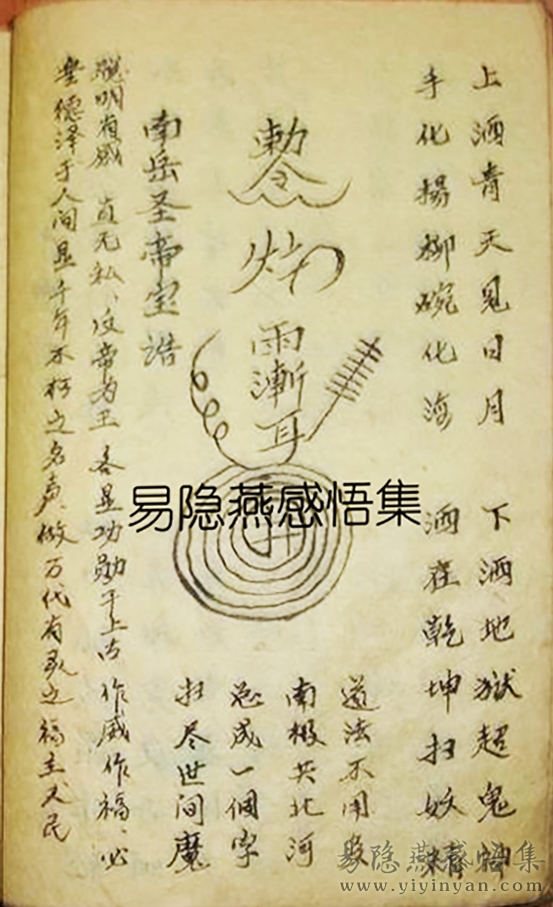 上洒青天見日月 下洒地獄超鬼神
手化揚柳碗化海 洒在乾坤扫妖精
敕令
雨漸耳
道法不用
南极共北河
总成一個字
扫尽世间魔
南岳圣帝宝诰
聪明有感 直无私、
帝为王 各显功勋于上古 作威作福、必
德泽于人间显千年不朽之名声、做万代有灵之福主
易隐燕感悟集
易隐燕感悟集
www.yiyinyan.com